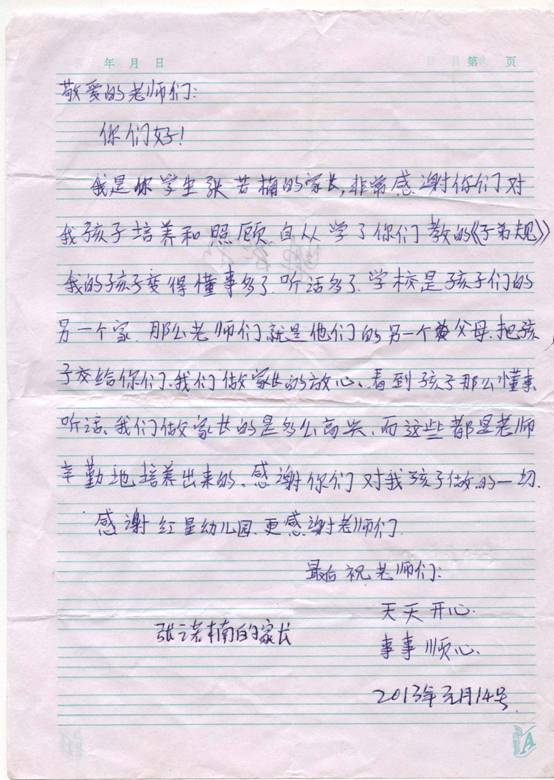 年 月 日 第 页
敬爱的老师们:
你们好!
我是你学生张若楠的家长,非常感谢你们对
我孩子培养和照顾.自从学了你们教的《子弟规》
我的孩子变得懂事多了.听话多了.学校是孩子们的
另一个家.那么老师们就是他们的另一个父母.把孩
子交给你们.我们做家长的放心、看到孩子那么懂事
听话、我们做家长的是多么高兴、而这些都是老师
辛勤地培养出来的、感谢你们对我孩子做的一切.
感谢红星幼儿园.更感谢老师们
最后祝老师们:
天天开心.
张诺楠的家长
事事顺心.
2013年元月14号